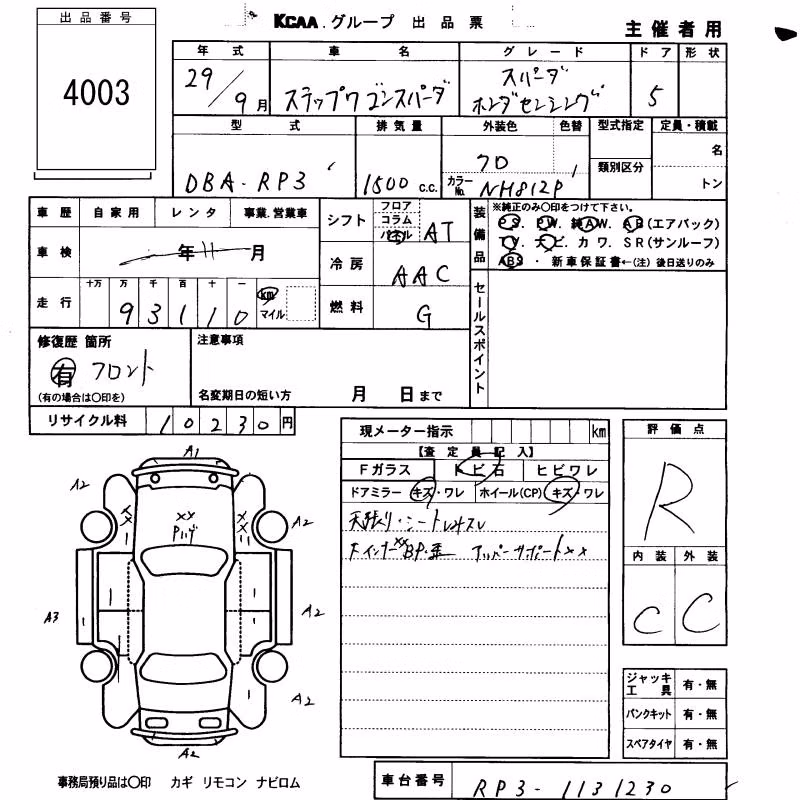 KCAA グループ 出品票
主催者用
出品番号
4003
年式 車名 グレード ドア 形状
29/9月 ステップワゴンスパーダ スパーダ ホンダセンシング 5
型式 排気量 外装色 色替 型式指定 定員・積載
DBA-RP3 1500 c.c. フロ カラーNo. NH812P 類別区分 名
トン
車歴 自家用 レンタ 事業.営業車
車検 年11月
走行 十万 万 千 百 十 一
93110 km マイル
シフト フロア コラム パネル AT
冷房 AAC
燃料 G
装備品 ※純正のみ○印をつけて下さい。
PS. PW. 純AW. AB(エアバック)
TV. ナビ. カワ. SR(サンルーフ)
ABS ・ 新車保証書←(注) 後日送りのみ
セールスポイント
修復歴 箇所
有 フロント
(有の場合は○印を)
注意事項
名変期日の短い方 月 日まで
リサイクル料 10230円
現メーター指示 km
【査定員記入】
Fガラス トビ石 ヒビワレ
ドアミラー キズ・ワレ ホイール(CP) キズ・ワレ
天張り・シート
FインナーXX BP・歪 アッパーサポートXX
評価点
R
内装 外装
C C
A1
A2
XX XX XX
Pハゲ
A2
A3
A2
A2
A2
ジャッキ工具 有・無
パンクキット 有・無
スペアタイヤ 有・無
事務局預り品は○印 カギ リモコン ナビロム
車台番号 RP3-1131230